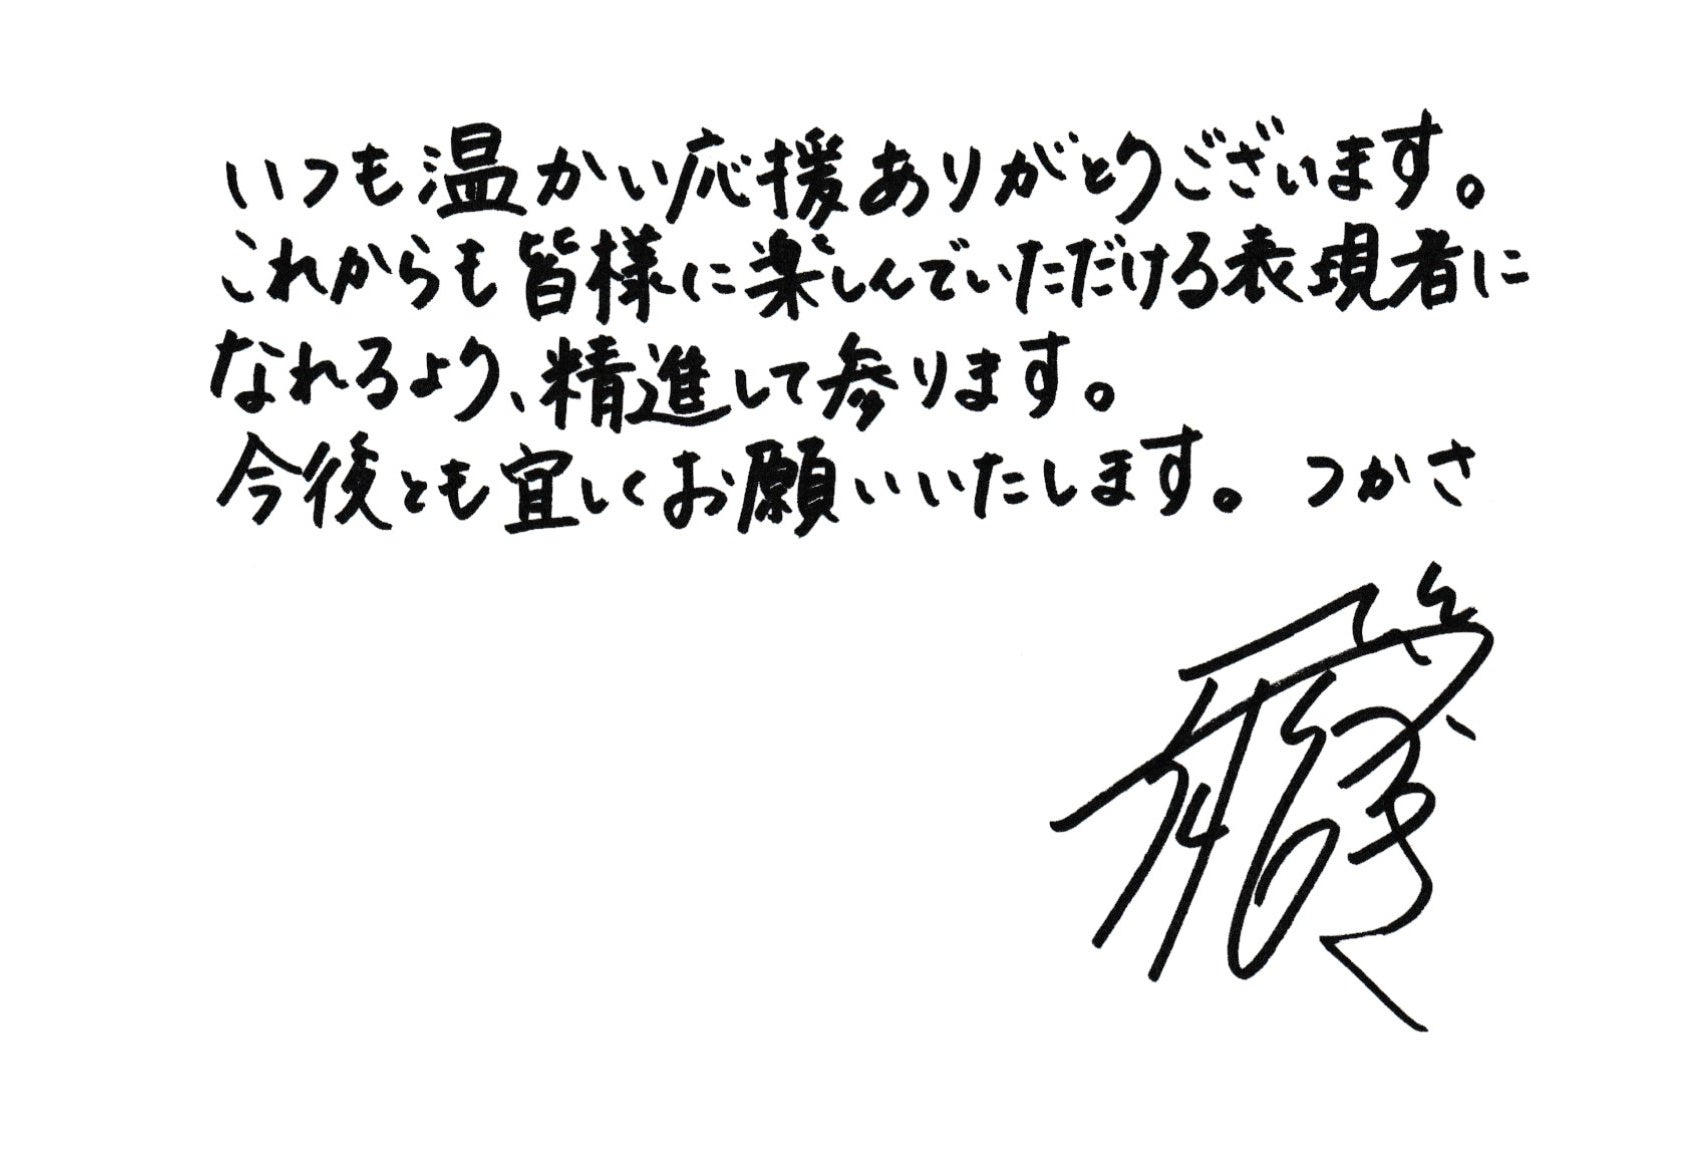 いつも温かい応援ありがとうございます。
これからも皆様に楽しんでいただける表現者に
なれるよう、精進して参ります。
今後とも宜しくお願いいたします。 つかさ